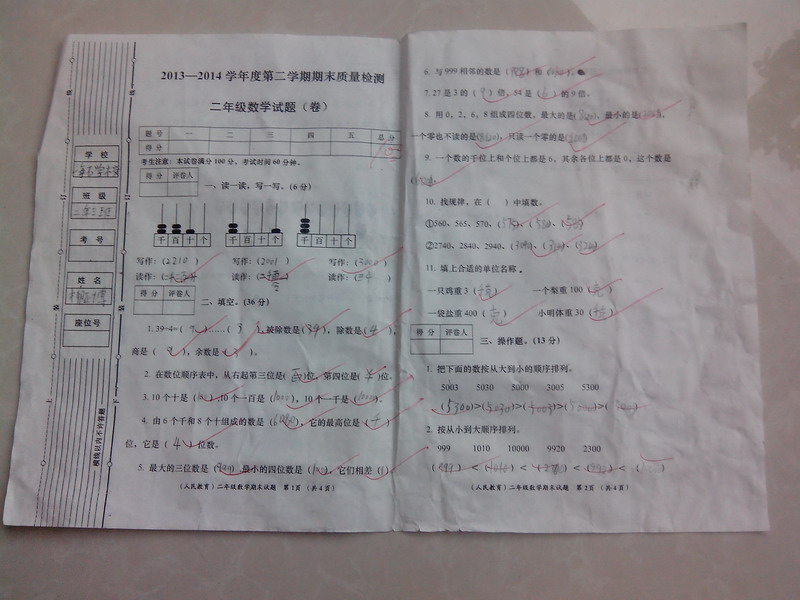 2013—2014 学年度第二学期期末质量检测
二年级数学试题（卷）
题号 一 二 三 四 五 总分
得分
考生注意：本试卷满分100分，考试时间60分钟。
得分 评卷人
一、读一读，写一写。(6分)
千百十个 千百十个 千百十个
写作：(2210) 写作：(2001) 写作：(3000)
读作：( 读作：( 读作：(三千)
得分 评卷人
二、填空。(36分)
1. 39÷4=( )……( 3 ),被除数是(39)，除数是(4)，
商是( 9 )，余数是( 3 )。
2. 在数位顺序表中，从右起第三位是(百)位，第四位是(千)位。
3. 10个十是(100),10个一百是(1000)，10个一千是( )。
4. 由6个千和8个十组成的数是(6080)，它的最高位是(千)
位，它是( 4 )位数。
5. 最大的三位数是( )最小的四位数是( )，它们相差(1)。
(人民教育) 二年级数学期末试题 第1页 (共4页)
6. 与999相邻的数是( )和( )。
7. 27是3的( 9 )倍，54是( 6 )的9倍。
8. 用0，2，6，8组成四位数，最大的是( )，最小的是( )，
一个零也不读的是( )，只读一个零的是( )
9. 一个数的千位上和个位上都是6，其余各位上都是0，这个数是
( )
10. 找规律，在( )中填数。
①560、565、570、(575)、(580)、( )
②2740、2840、2940、( )、( )、( )
11. 填上合适的单位名称。
一只鸡重3( ) 一个梨重100(克)
一袋盐重400(克) 小明体重30( )
得分 评卷人
三、操作题。(13分)
1. 把下面的数按从大到小的顺序排列。
5003 5030 5000 3005 5300
(5300)>(5030)>(5003)>( )>( )
2. 按从小到大顺序排列。
999 1010 10000 9920 2300
(999) < (1010) < (2300) < ( ) < ( )
(人民教育) 二年级数学期末试题 第2页 (共4页)
学校
班级
二年三班
考号
姓名
座位号
横线以内不许答题
上
装
订
线
下